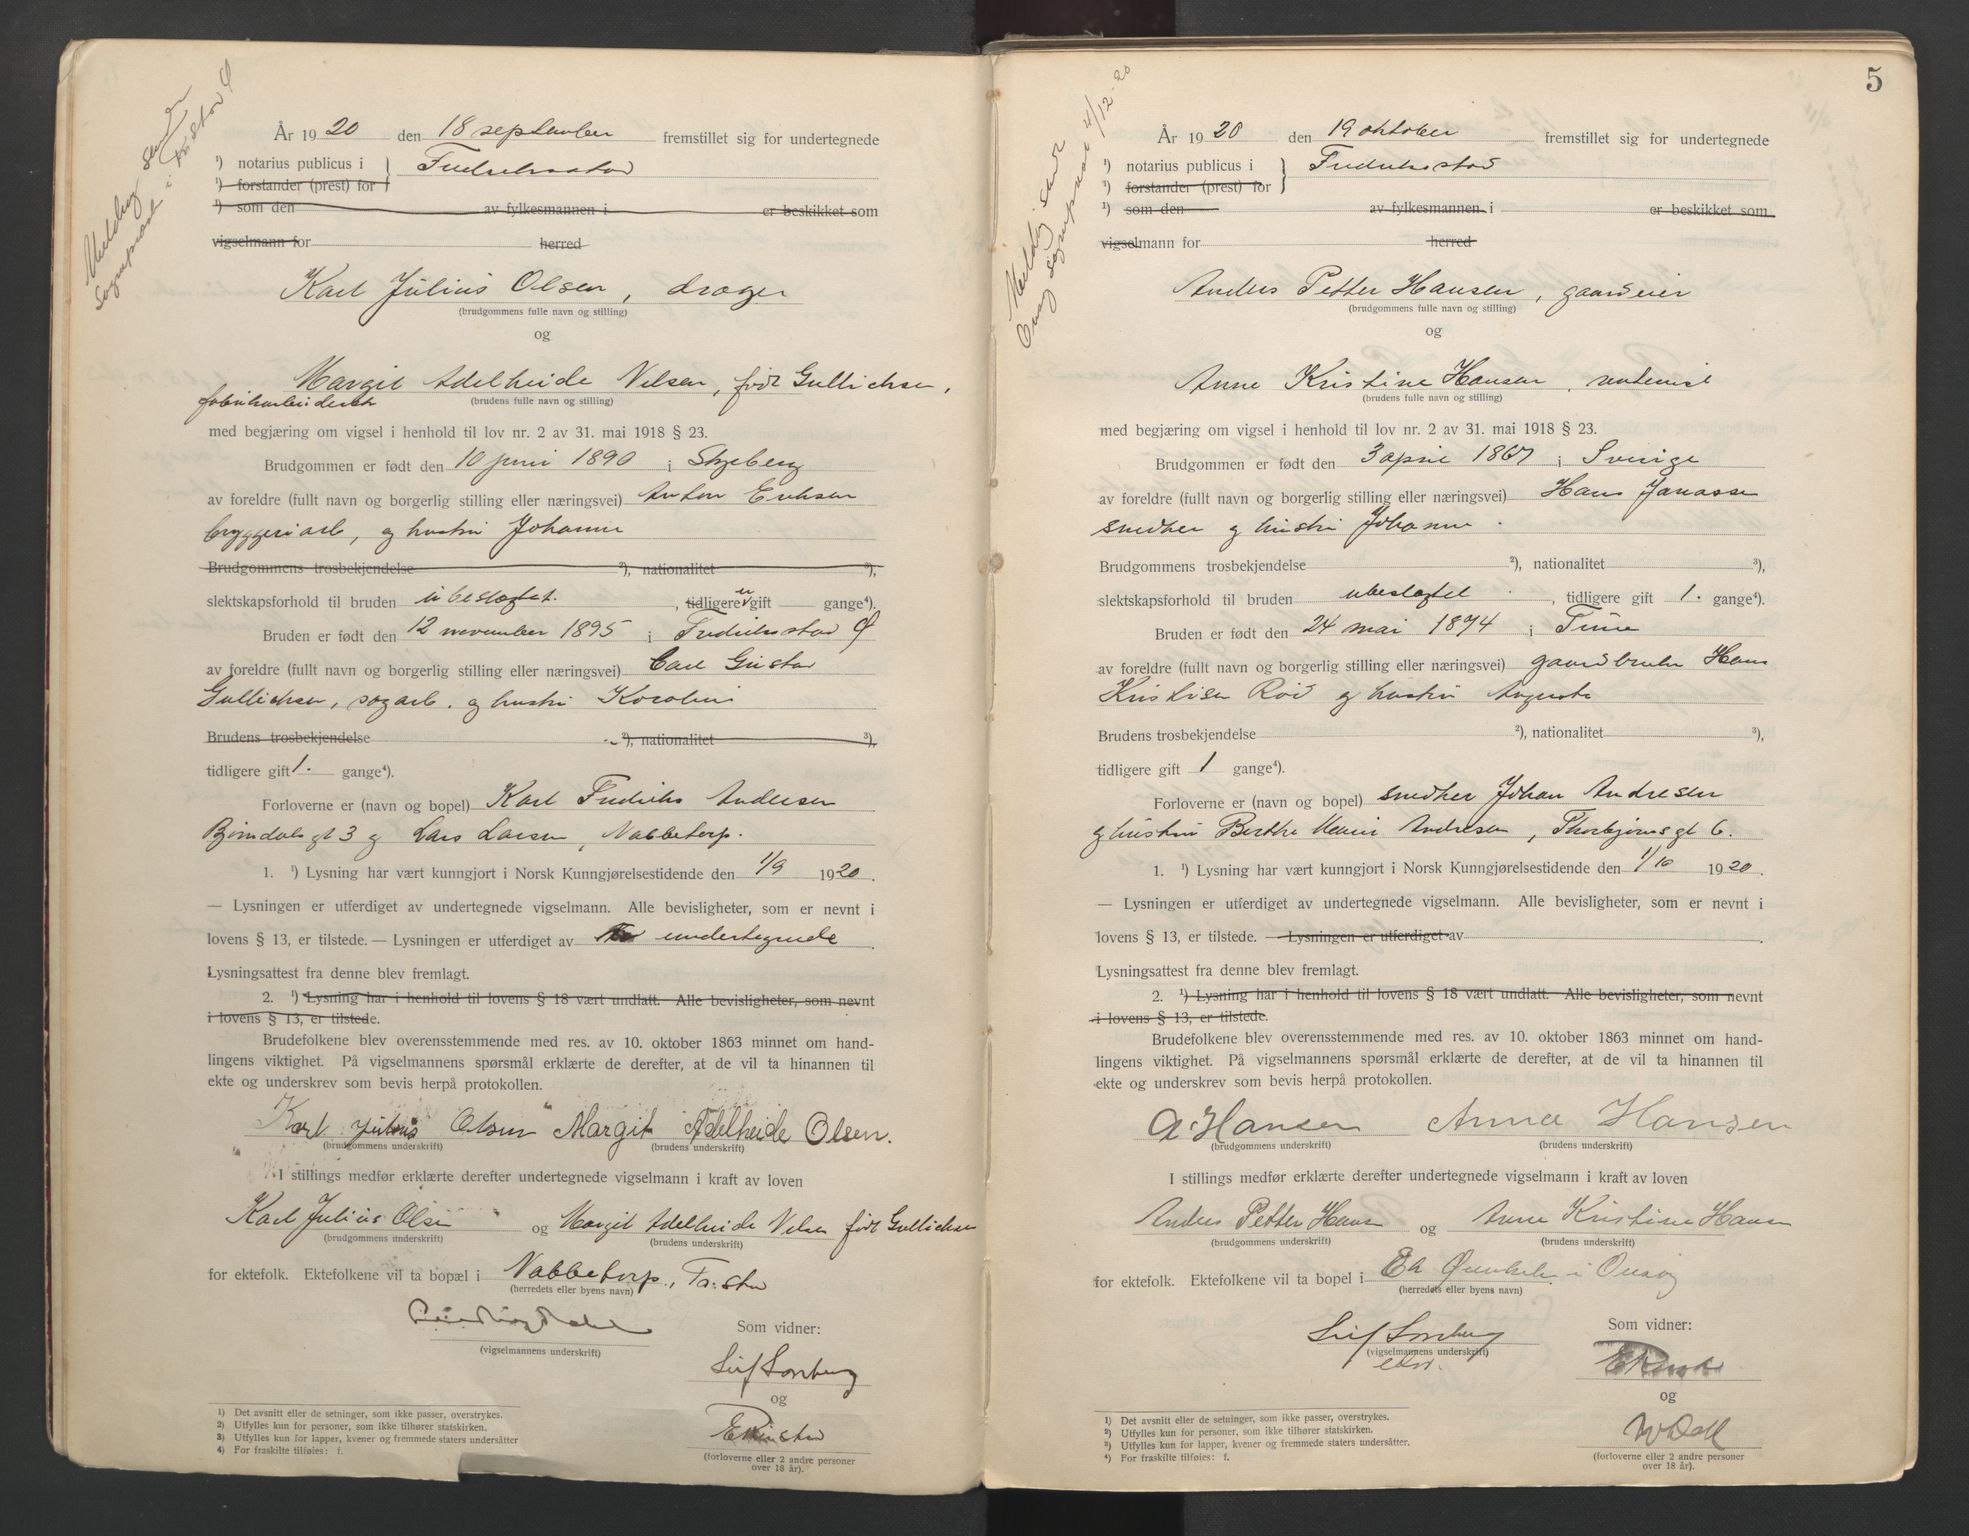 År 1920 den 18 september fremstillet sig for undertegnede
¹) notarius publicus i Fredriksstad
¹) forstander (prest) for
¹) som den av fylkesmannen i er beskikket som
vigselmann for herred
Karl Julius Olsen, drager
(brudgommens fulle navn og stilling)
og
Margit Adelheide Nilsen, født Gullichsen,
fabrikarbeiderske
(brudens fulle navn og stilling)
med begjæring om vigsel i henhold til lov nr. 2 av 31. mai 1918 § 23.
Brudgommen er født den 10 juni 1890 i Skjeberg
av foreldre (fullt navn og borgerlig stilling eller næringsvei) Anton Eriksen
bryggeriarb, og hustru Johanne
Brudgommens trosbekjendelse ²), nationalitet ³),
slektskapsforhold til bruden ubeslægtet, tidligere ugift gange⁴).
Bruden er født den 12 november 1895 i Fredriksstad Ø
av foreldre (fullt navn og borgerlig stilling eller næringsvei) Carl Gustav
Gullichsen, sagarb. og hustru Karoline
Brudens trosbekjendelse ²), nationalitet ³),
tidligere gift 1. gange⁴).
Forloverne er (navn og bopel) Karl Fredriks Andersen
Bjørndalsgt 3 og Lars Larsen, Nabbetorp.
1. ¹) Lysning har vært kunngjort i Norsk Kunngjørelsestidende den 1/9 1920.
— Lysningen er utferdiget av undertegnede vigselmann. Alle bevisligheter, som er nevnt i
lovens § 13, er tilstede. — Lysningen er utferdiget av undertegnede
Lysningsattest fra denne blev fremlagt.
2. ¹) Lysning har i henhold til lovens § 18 vært undlatt. Alle bevisligheter, som nevnt
i lovens § 13, er tilstede.
Brudefolkene blev overensstemmende med res. av 10. oktober 1863 minnet om hand-
lingens viktighet. På vigselmannens spørsmål erklærte de derefter, at de vil ta hinannen til
ekte og underskrev som bevis herpå protokollen.
Karl Julius Olsen Margit Adelheide Olsen.
(brudgommens underskrift) (brudens underskrift)
I stillings medfør erklærte derefter undertegnede vigselmann i kraft av loven
Karl Julius Olsen og Margit Adelheide Nilsen født Gullichsen
(brudgommens underskrift) (brudens underskrift)
for ektefolk. Ektefolkene vil ta bopæl i Nabbetorp,
(herredets eller byens navn)
(vigselmannens underskrift)
Som vidner:
Leif
og
(forloverne eller 2 andre personer
over 18 år).
¹) Det avsnitt eller de setninger, som ikke passer, overstrykes.
²) Utfylles kun for personer, som ikke tilhører statskirken.
³) Utfylles kun for lapper, kvener og fremmede staters undersåtter
⁴) For fraskilte tilføies: f.
5
4/12-20
År 1920 den 19 oktober fremstillet sig for undertegnede
¹) notarius publicus i Fredriksstad
¹) forstander (prest) for
¹) som den av fylkesmannen i er beskikket som
vigselmann for herred
Anders Petter Hansen, gaardeier
(brudgommens fulle navn og stilling)
og
Anne Kristine Hansen,
(brudens fulle navn og stilling)
med begjæring om vigsel i henhold til lov nr. 2 av 31. mai 1918 § 23.
Brudgommen er født den 3 april 1867 i Sverige
av foreldre (fullt navn og borgerlig stilling eller næringsvei) Hans
snedker og hustru Johanne
Brudgommens trosbekjendelse ²), nationalitet ³),
slektskapsforhold til bruden ubeslægtet, tidligere gift 1. gange⁴).
Bruden er født den 24 mai 1874 i Tune
av foreldre (fullt navn og borgerlig stilling eller næringsvei) gaardbruker Hans
Kristian Rød og hustru Auguste
Brudens trosbekjendelse ²), nationalitet ³),
tidligere gift 1 gange⁴).
Forloverne er (navn og bopel) snedker Johan Andresen
og hustru Berthe Marie Andresen, Thorbjørnsgt 6.
1. ¹) Lysning har vært kunngjort i Norsk Kunngjørelsestidende den 1/10 1920.
— Lysningen er utferdiget av undertegnede vigselmann. Alle bevisligheter, som er nevnt i
lovens § 13, er tilstede. — Lysningen er utferdiget av
Lysningsattest fra denne blev fremlagt.
2. ¹) Lysning har i henhold til lovens § 18 vært undlatt. Alle bevisligheter, som nevnt
i lovens § 13, er tilstede.
Brudefolkene blev overensstemmende med res. av 10. oktober 1863 minnet om hand-
lingens viktighet. På vigselmannens spørsmål erklærte de derefter, at de vil ta hinannen til
ekte og underskrev som bevis herpå protokollen.
A. Hansen Anna Hansen
(brudgommens underskrift) (brudens underskrift)
I stillings medfør erklærte derefter undertegnede vigselmann i kraft av loven
Anders Petter Hansen og Anne Kristine Hansen
(brudgommens underskrift) (brudens underskrift)
for ektefolk. Ektefolkene vil ta bopel i i Onsøy
(herredets eller byens navn)
Leif
(vigselmannens underskrift)
Som vidner:
og
(forloverne eller 2 andre personer
over 18 år).
¹) Det avsnitt eller de setninger, som ikke passer, overstrykes.
²) Utfylles kun for personer, som ikke tilhører statskirken.
³) Utfylles kun for lapper, kvener og fremmede staters undersåtter.
⁴) For fraskilte tilføies: f.